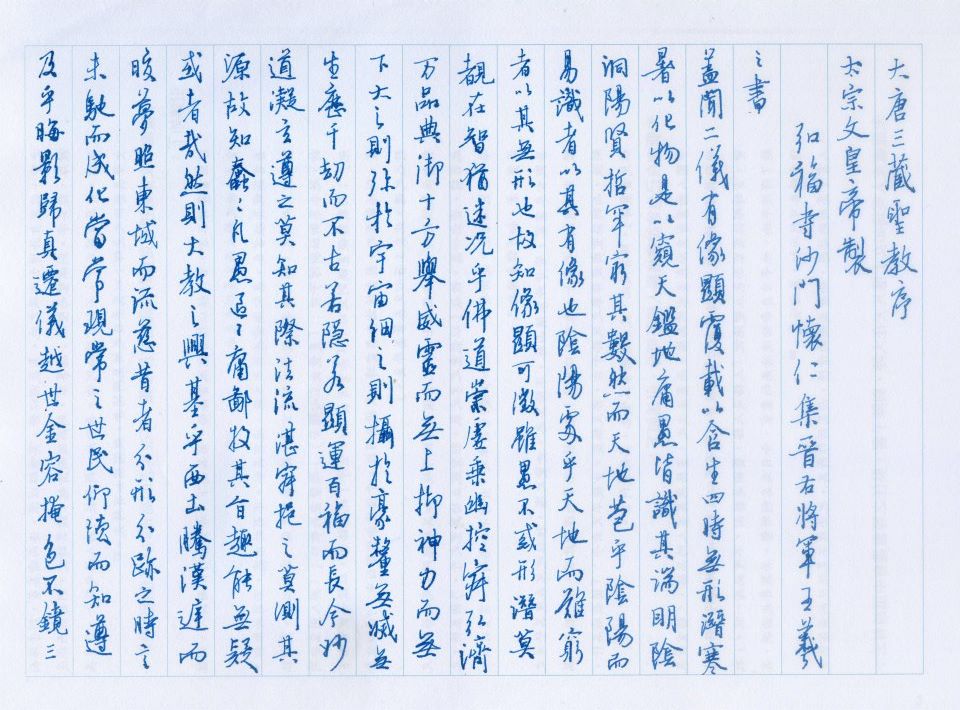 大唐三藏聖教序
太宗文皇帝製
弘福寺沙門懷仁集晉右將軍王羲
之書
蓋聞二儀有像顯覆載以含生四時無形潛寒
暑以化物是以窺天鑑地庸愚皆識其端明陰
洞陽賢哲罕窮其數然而天地苞乎陰陽而
易識者以其有像也陰陽處乎天地而難窮
者以其無形也故知像顯可徵雖愚不惑形潛莫
覩在智猶迷況乎佛道崇虛乘幽控寂弘濟
万品典御十方舉威靈而無上抑神力而無
下大之則弥於宇宙細之則攝於豪釐無滅無
生歷千劫而不古若隱若顯運百福而長今妙
道凝玄遵之莫知其際法流湛寂挹之莫測其
源故知蠢〻凡愚區〻庸鄙投其旨趣能無疑
或者哉然則大教之興基乎西土騰漢庭而
皎夢照東域而流慈昔者分形分跡之時言
未馳而成化當常現常之世民仰德而知遵
及乎晦影歸真遷儀越世金容掩色不鏡三